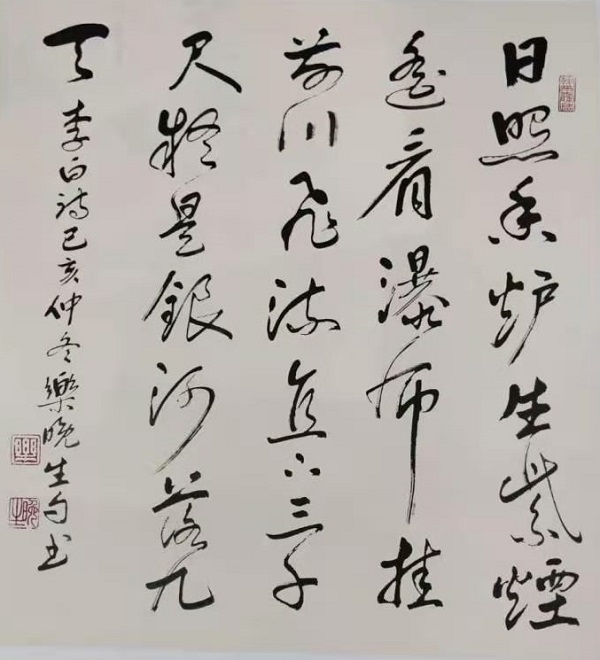 日照香炉生紫煙
遙看瀑布挂
前川飛流直下三千
尺疑是銀河落九
天 李白詩己亥仲冬樂晚生书